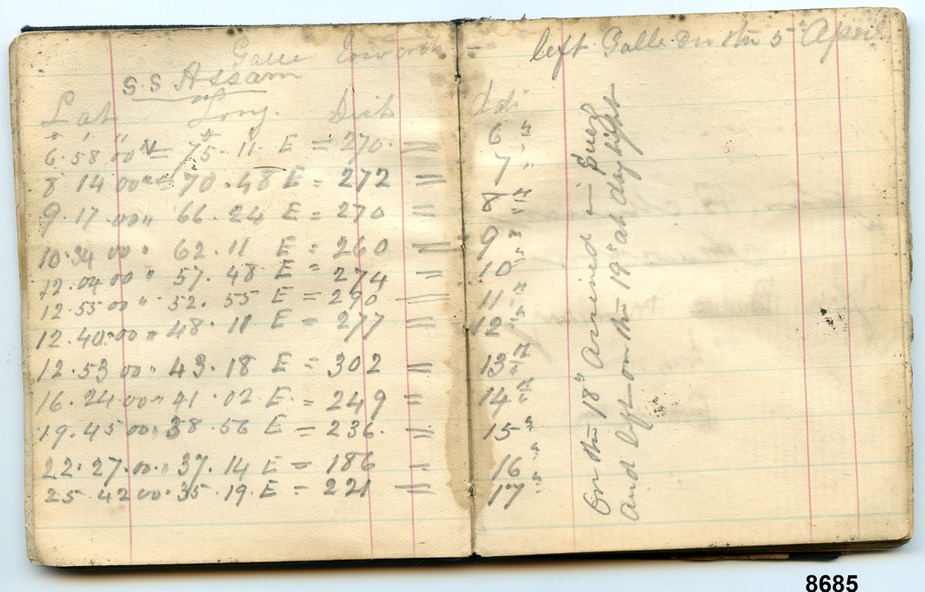 Galle towards = left Galle on the 5th April
S.S. Assam
Lat Long. Dist
6.58 00 N = 75.11. E = 270. = 6 "
8 14 00 " = 70.48 E = 272 = 7 "
9.17.00 " 66.24 E = 270 = 8 "
10.34 00 " 62.11 E = 260 = 9 "
12.04 00 " 57.48 E = 274 = 10 "
12.55 00 " 52.55 E = 290 = 11 "
12.40.00 " = 48.11 E = 277 = 12 "
12.53 00 " 43.18 E = 302 = 13th
16.24 00 " 41.02 E = 249 = 14th
19.45 00 " 38.56 E = 236. = 15 "
22.27.00 " 37.14 E = 186 = 16 "
25.42 00 " 35.19. E = 221 = 17 "
On the 18th Arrived in Suez
and left on the 19th at daylight
8685